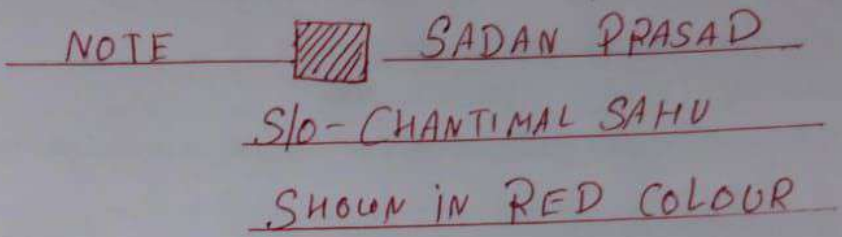 NOTE SADAN PRASAD
S/O- CHANTIMAL SAHU
SHOWN IN RED COLOUR